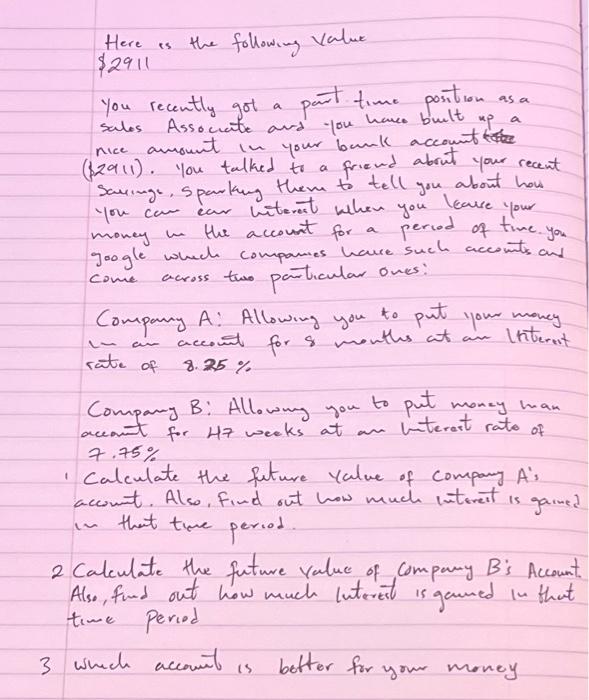 Here is the following value
$2911
You recently got a part time position as a
sales Associate and you have built up a
nice amount in your bank account
($2911). You talked to a friend about your recent
Savings, sparking them to tell you about how
you can ear interest when you leave your
money in the account for a period of time. you
google which companies have such accounts and
come across two particular ones:
Company A: Allowing you to put your money
in an account for 8 months at an Interest
rate of 8.25 %
Company B: Allowing you to put money in an
account for 47 weeks at an interest rate of
7.75%
1 Calculate the future value of company A's
account. Also, find out how much interest is gained
in that time period.
2 Calculate the future value of Company B's Account.
Also, find out how much interest is gained in that
time Period
3 which account is better for your money